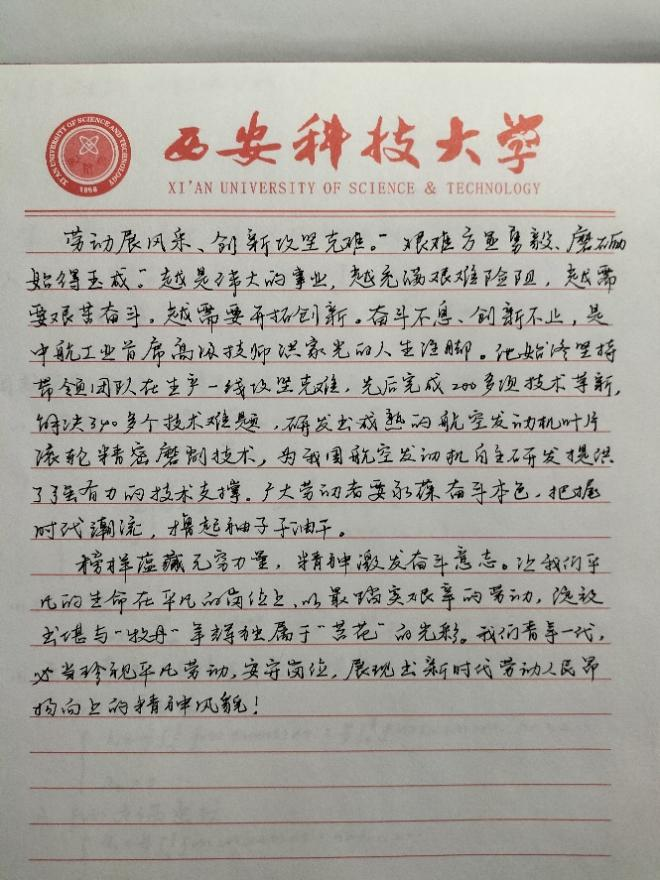 XI'AN UNIVERSITY OF SCIENCE AND TECHNOLOGY
1958
西安科技大学
XI'AN UNIVERSITY OF SCIENCE & TECHNOLOGY
劳动展风采、创新攻坚克难。"艰难方显勇毅、磨砺
始得玉成"。越是伟大的事业，越充满艰难险阻，越需
要艰苦奋斗。越需要开拓创新。奋斗不息、创新不止，是
中航工业首席高级技师洪家光的人生注脚。他始终坚持
带领团队在生产一线攻坚克难，先后完成200多项技术革新，
解决340多个技术难题，研发出成熟的航空发动机叶片
滚轮精密磨削技术，为我国航空发动机自主研发提供
了强有力的技术支撑。广大劳动者要永葆奋斗本色，把握
时代潮流，撸起袖子加油干。
榜样蕴藏无穷力量，精神激发奋斗意志。让我们平
凡的生命在平凡的岗位上、以最踏实艰辛的劳动，绽放
出堪与"牡丹"争辉独属于"苔花"的光彩。我们青年一代，
必当珍视平凡劳动，安守岗位，展现出新时代劳动人民昂
扬向上的精神风貌！